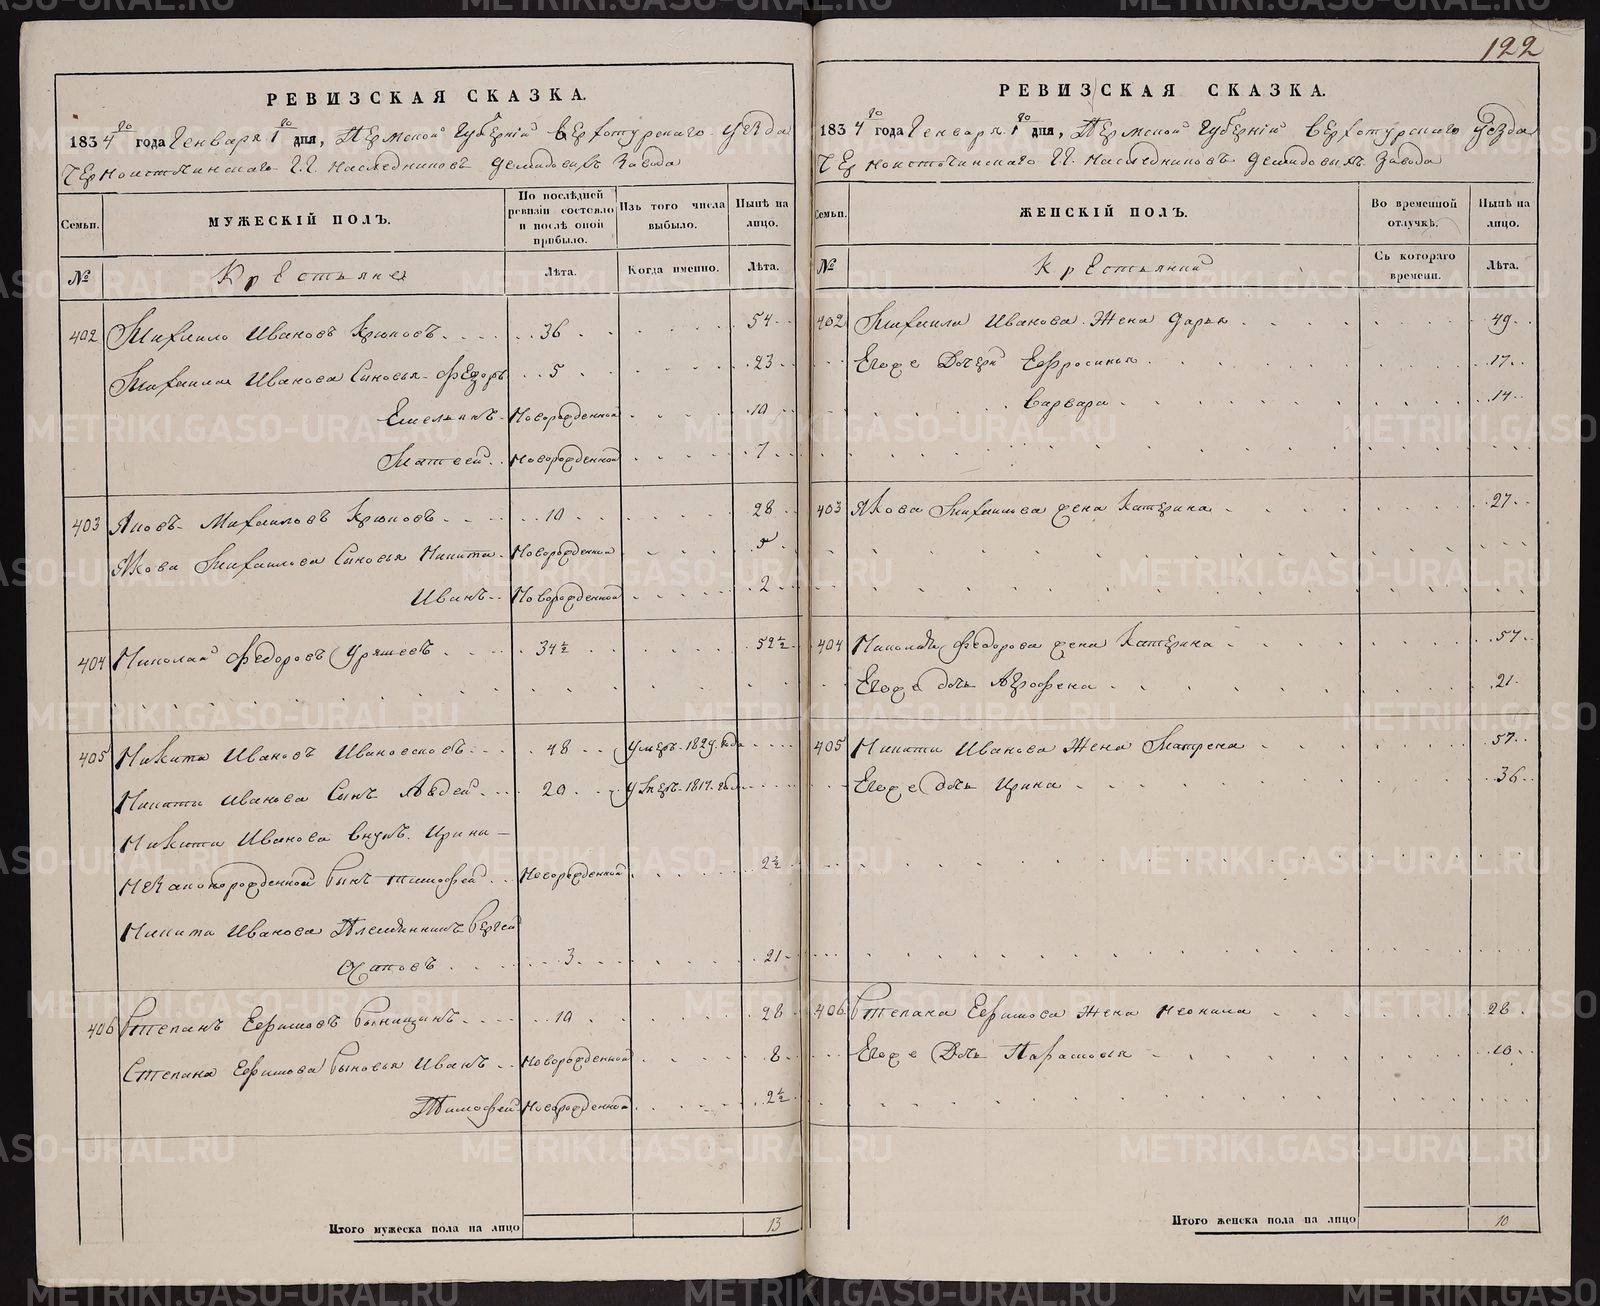 122
РЕВИЗСКАЯ СКАЗКА.
1834го года Генваря 1го дня, Пермской Губернiи Верхотурскаго уезда
Черноисточинскаго Г.Г. Наследниковъ Демидовыхъ Завода
Семьи.
МУЖЕСКІЙ ПОЛЪ.
По послѣдней ревизіи состояло и послѣ оной прибыло.
Изъ того числа выбыло.
Нынѣ на лицо.
№
Крестьяне
Лѣта.
Когда именно.
Лѣта.
402 Михаило Ивановъ Крюковъ 36 54
Михаила Иванова Сыновья Федоръ 5 23
Емельянъ Новорожденной 10
Матвей Новорожденной 7
403 Яковъ Михаиловъ Крюковъ 10 28
Якова Михаилова Сыновья Никита Новорожденной
Иванъ Новорожденной 2
404 Николай Федоровъ 34½ 52½
405 Никита Ивановъ 48 Умеръ 1829 года
Никиты Иванова Сынъ Авдей 20 Умеръ 1817 года
Никиты Иванова внукъ Ирины
незаконорожденной Сынъ Тимофей Новорожденной 2½
Никиты Иванова Племянникъ Сергей
3 21
406 Степанъ Ефимовъ 10 28
Степана Ефимова Сыновья Иванъ Новорожденной 8
Тимофей Новорожденной 2½
Итого мужеска пола на лицо 13
РЕВИЗСКАЯ СКАЗКА.
1834го года Генваря 1го дня, Пермской Губернiи Верхотурскаго уезда
Черноисточинскаго Г.Г. Наследниковъ Демидовыхъ Завода
Семьи.
ЖЕНСКІЙ ПОЛЪ.
Во временной отлучкѣ.
Нынѣ на лицо.
№
Крестьянки
Съ котораго времени.
Лѣта.
402 Михаила Иванова Жена Дарья 49
Егоже Дочери Ефросинья 17
Варвара 14
403 Якова Михаилова жена Катерина 27
404 Николая Федорова жена Катерина 57
Егоже дочь Агрофена 21
405 Никиты Иванова Жена Матрена 57
Егоже дочь Ирина 36
406 Степана Ефимова Жена Неонила 28
Егоже Дочь Парасковья 10
Итого женска пола на лицо 10
METRIKI.GASO-URAL.RU